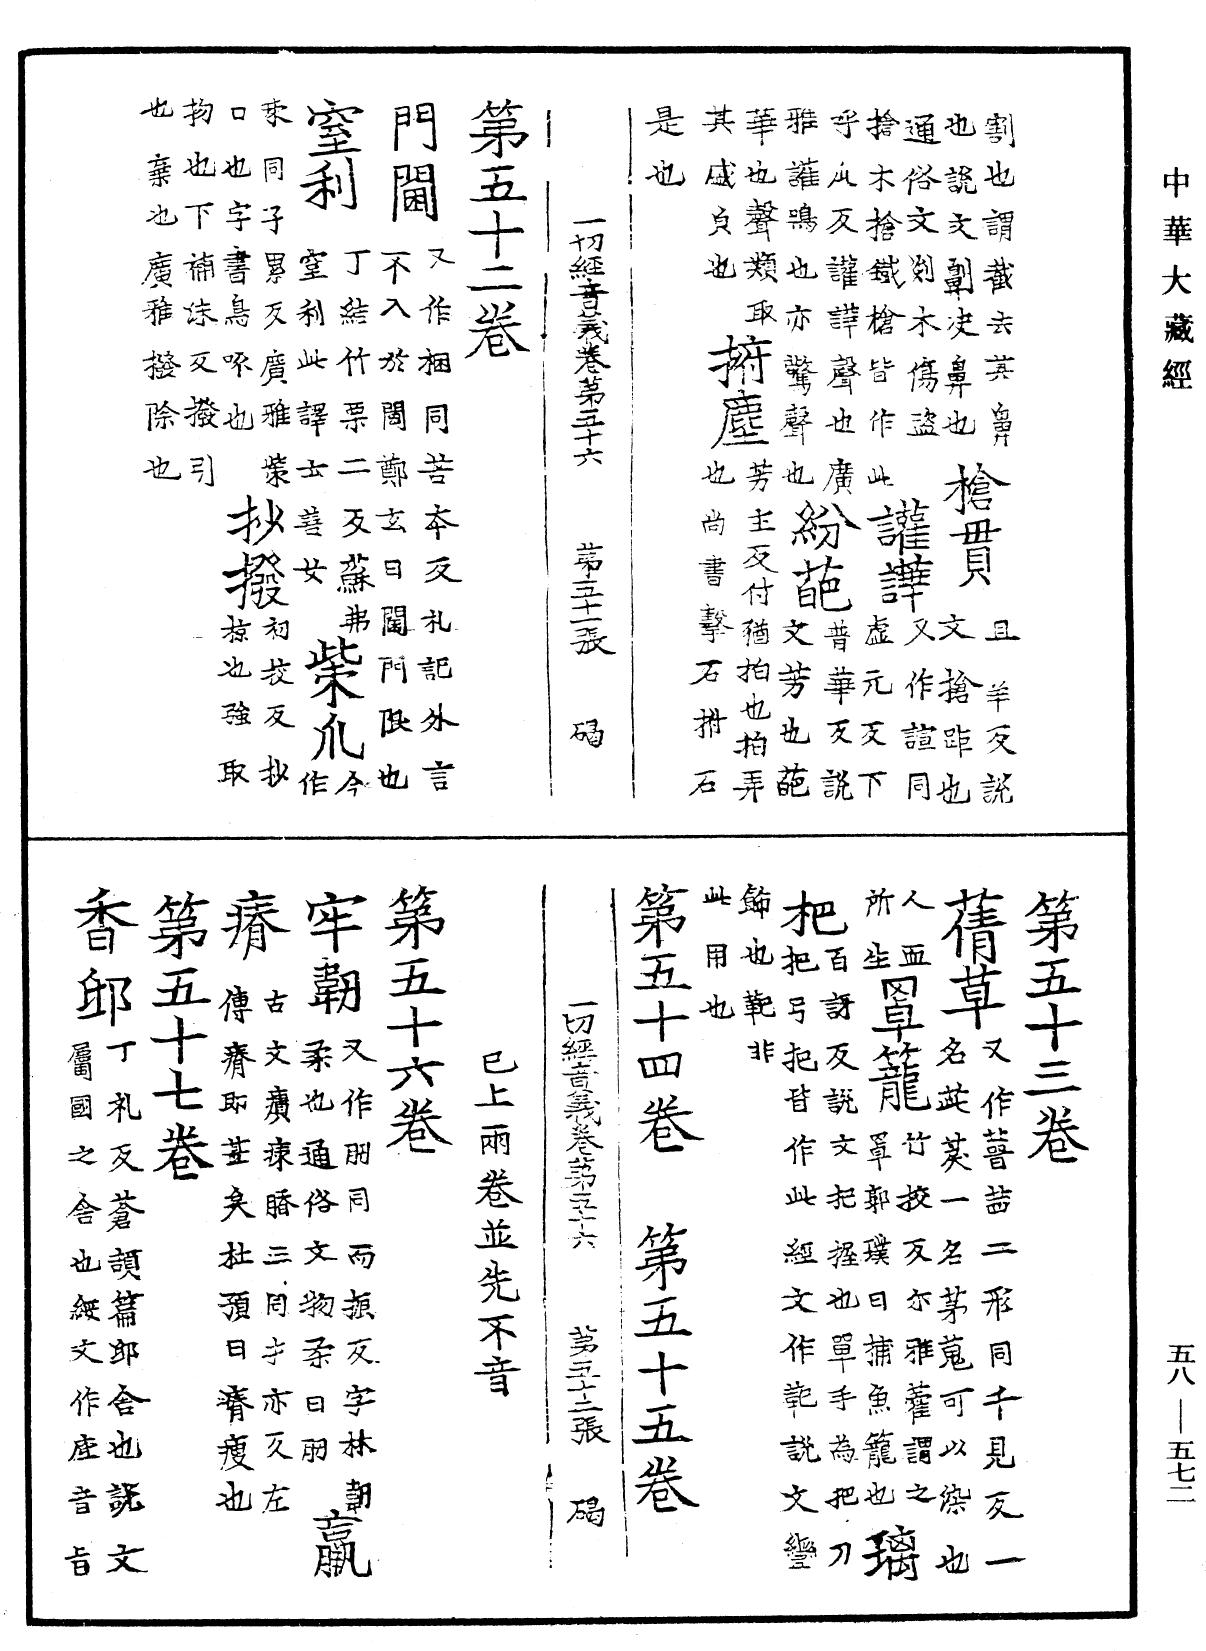 中華大藏經
割也謂截去其鼻
也說文劓决鼻也
槍貫
且羊反說
文槍距也
通俗文剡木傷盜
槍木槍鐵槍皆作此
讙譁
又作諠同
虛元反下
呼瓜反讙譁聲也廣
雅讙鳴也亦驚聲也
紛葩
普華反說
文芳也葩
華也聲類取
其盛皃也
拊塵
芳主反付猶拍也拍弄
也尚書擊石拊石
是也
一切經音義卷第五十六 第五十一張 碣
第五十二卷
門閫
又作梱同苦本反礼記外言
不入於閫鄭玄曰閫門限也
窒利
丁結竹栗二反蘇弗
窒利此譯云善女
柴爪
今作
𠂹同子累反廣雅柴
口也字書鳥喙也
抄撥
初校反抄
掠也強取
物也下補沫反撥引
也棄也廣雅撥除也
第五十三卷
蒨草
又作蒨茜二形同千見反一
名茈莀一名茅蒐可以染也
人血
所生
罩籠
竹挍反尔雅藿謂之
罩郭璞曰捕魚籠也
璃
把
百訝反說文把握也單手為把刀
把弓把皆作此經文作䩗說文轡
飾也䩗非
此用也
第五十四卷 第五十五卷
一切經音義卷第五十六 第五十二張 碣
已上兩卷並先不音
第五十六卷
牢韌
又作肕同而振反字林韌
柔也通俗文物柔曰肕
羸
瘠
古文𤺊𤷃膌三同才亦反左
傳瘠耶甚矣杜預曰瘠瘦也
第五十七卷
香邸
丁礼反蒼頡篇邸舍也說文
屬國之舍也經文作底音旨
五八—五七二